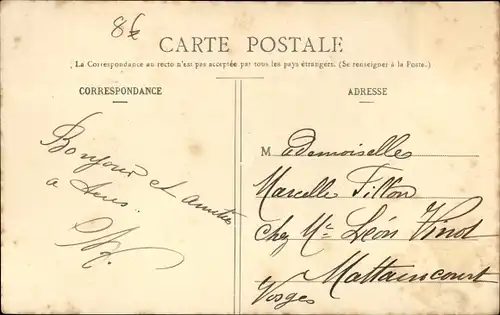 8€
CARTE POSTALE
La Correspondance au recto n'est pas acceptée par tous les pays étrangers. (Se renseigner à la Poste.)
CORRESPONDANCE
Bonjour et amitiés
a tous..
ADRESSE
Mademoiselle
Marcelle Tillon
chez Mr Léon Vinot
Mattaincourt
Vosges